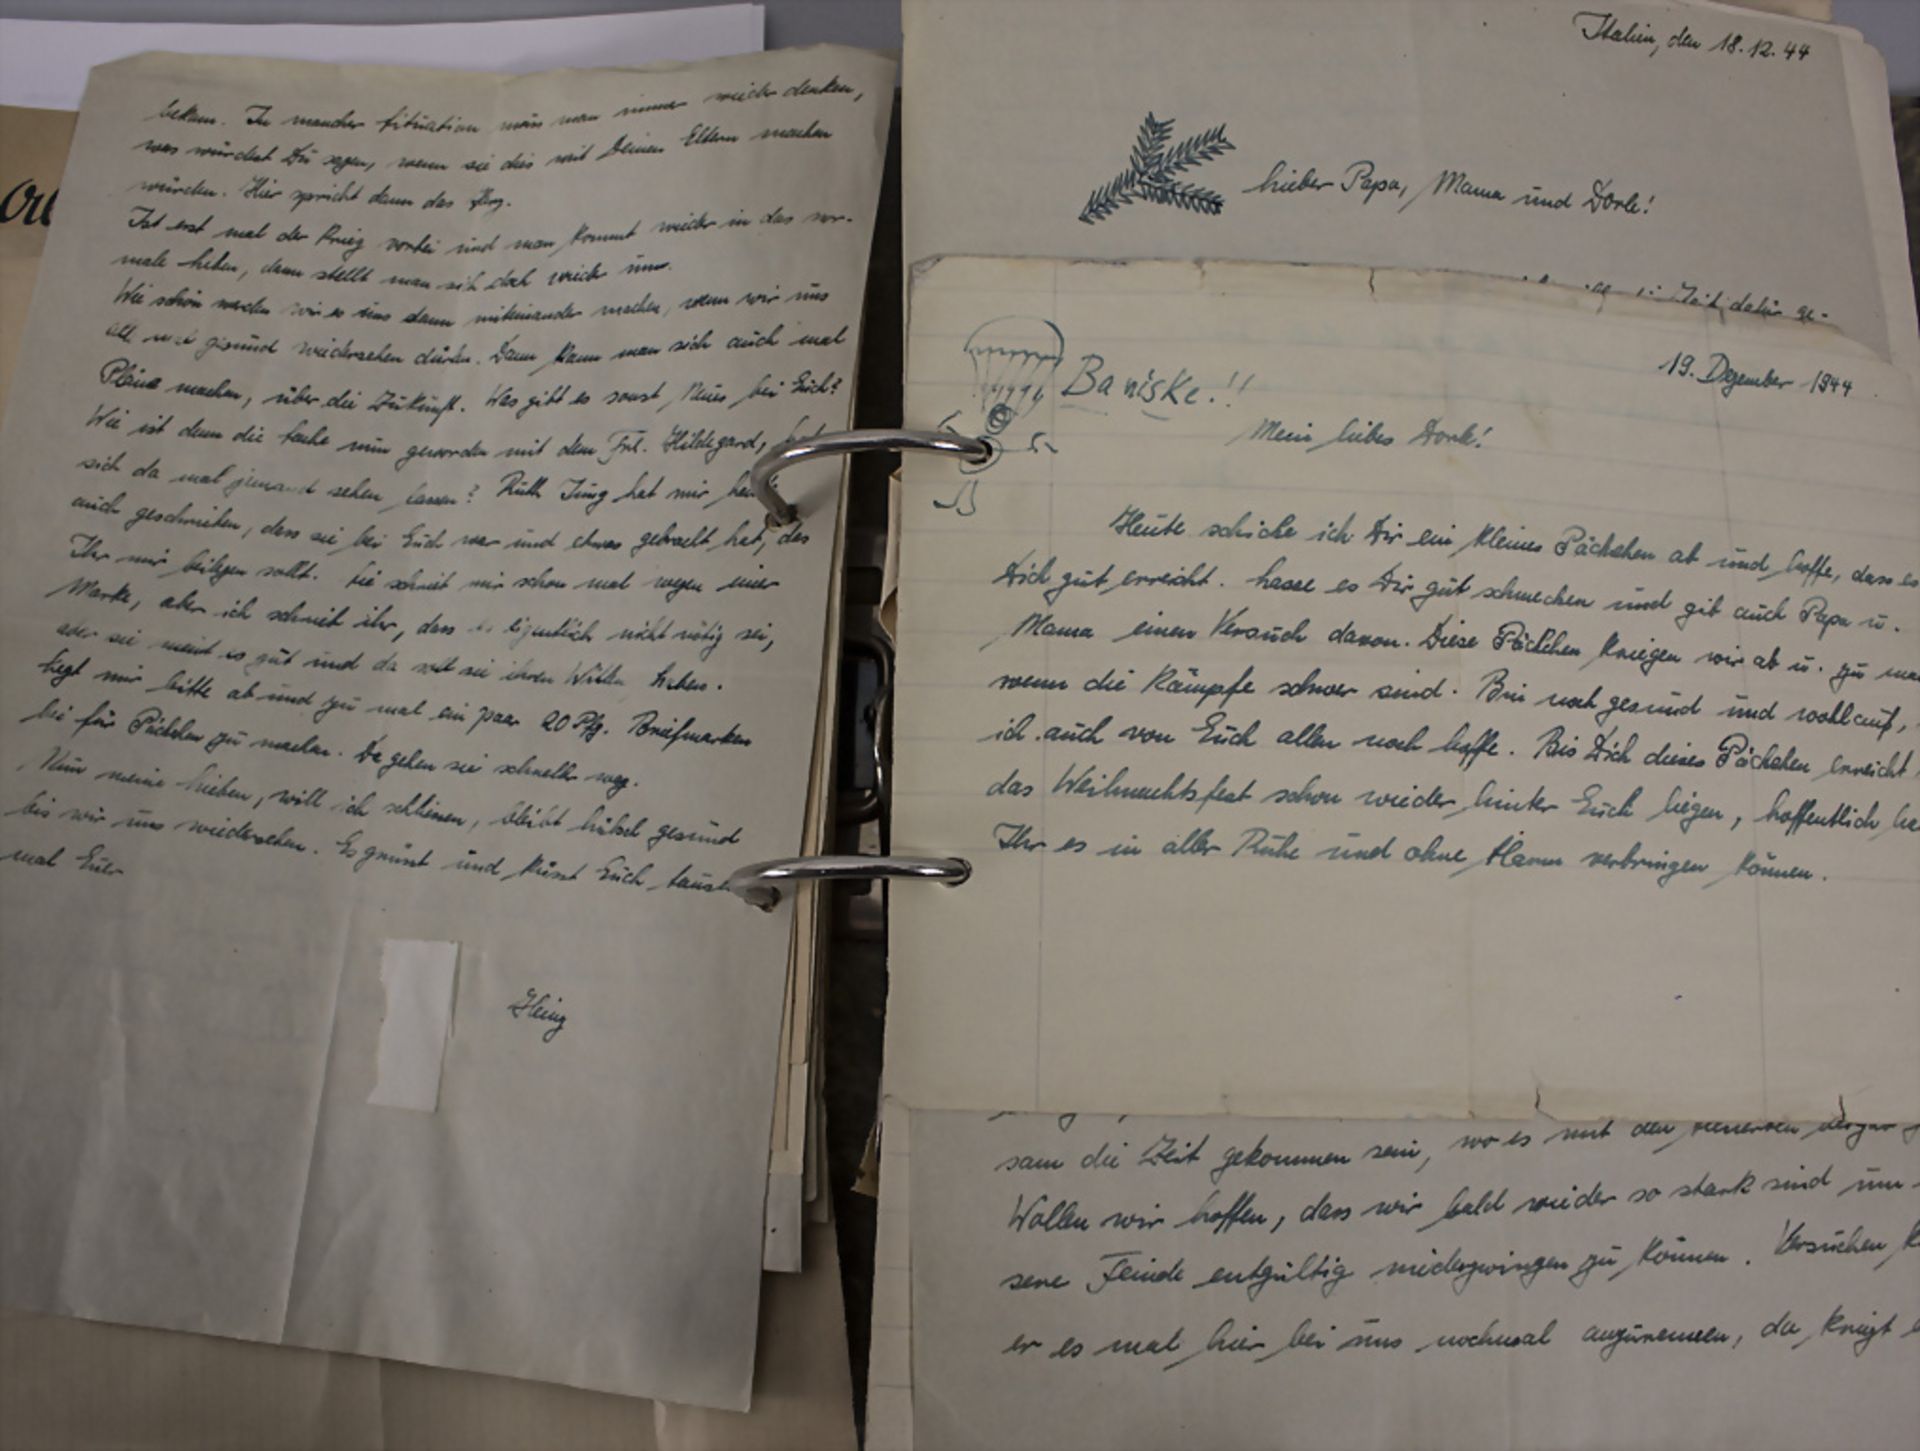 bekam. In mancher Situation muss man immer wieder denken,
was würdest Du sagen, wenn sie dies mit Deinen Eltern machen
würden. Hier spricht dann das Herz.
Ist erst mal der Krieg vorbei und man kommt wieder in das nor-
male Leben, dann stellt man sich doch wieder um.
Wie schön werden wir es uns dann miteinander machen, wenn wir uns
all gesund wiedersehen dürfen. Dann kann man sich auch mal
Pläne machen, über die Zukunft. Was gibt es sonst Neues bei Euch?
Wie ist denn die Sache nun geworden mit dem Frl. Hildegard, hat
sich da mal jemand sehen lassen? Ruth Jung hat mir heute
auch geschrieben, dass sie bei Euch war und etwas gebracht hat, das
Ihr mir beilegen sollt. Sie schrieb mir schon mal wegen einer
Marke, aber ich schrieb ihr, dass es eigentlich nicht nötig sei,
aber sie meint es gut und da soll sie ihren Willen haben.
Legt mir bitte ab und zu mal ein paar 20 Pfg. Briefmarken
bei für Päckchen zu machen. Da gehen sie schneller weg.
Nun meine Lieben, will ich schliesen, bleibt hübsch gesund
bis wir uns wiedersehen. Es grüsst und küsst Euch tausend
mal Euer
Heinz
Italien, den 18.12.44
Lieber Papa, Mama und Dorle!
Zeit dafür ge-
19. Dezember 1944
Baniske!!
Mein liebes Dorle!
Heute schicke ich Dir ein kleines Päckchen ab und hoffe, dass es
Dich gut erreicht. Lasse es Dir gut schmecken und gib auch Papa u.
Mama einen Versuch davon. Diese Päckchen kriegen wir ab u. zu mal
wenn die Kämpfe schwer sind. Bin noch gesund und wohlauf,
ich auch von Euch allen noch hoffe. Bis Dich dieses Päckchen erreicht
das Weihnachtsfest schon wieder hinter Euch liegen, hoffentlich ha
Ihr es in aller Ruhe und ohne Alarm verbringen können.
sam die Zeit gekommen sein, wo es mit den
Wollen wir hoffen, dass wir bald wieder so stark sind um
sere Feinde entgültig niederzwingen zu können. Versuchen k
er es mal hier bei uns nochmal anzurennen, da kriegt e